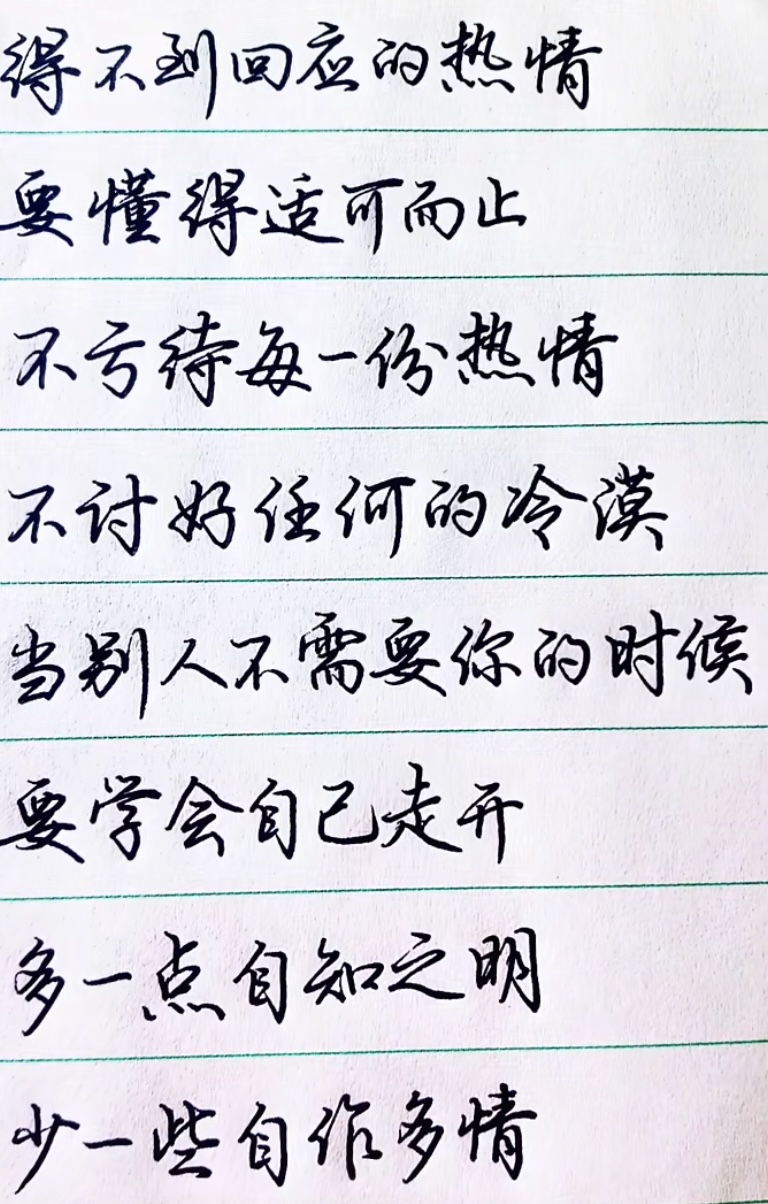 得不到回应的热情
要懂得适可而止
不亏待每一份热情
不讨好任何的冷漠
当别人不需要你的时候
要学会自己走开
多一点自知之明
少一些自作多情